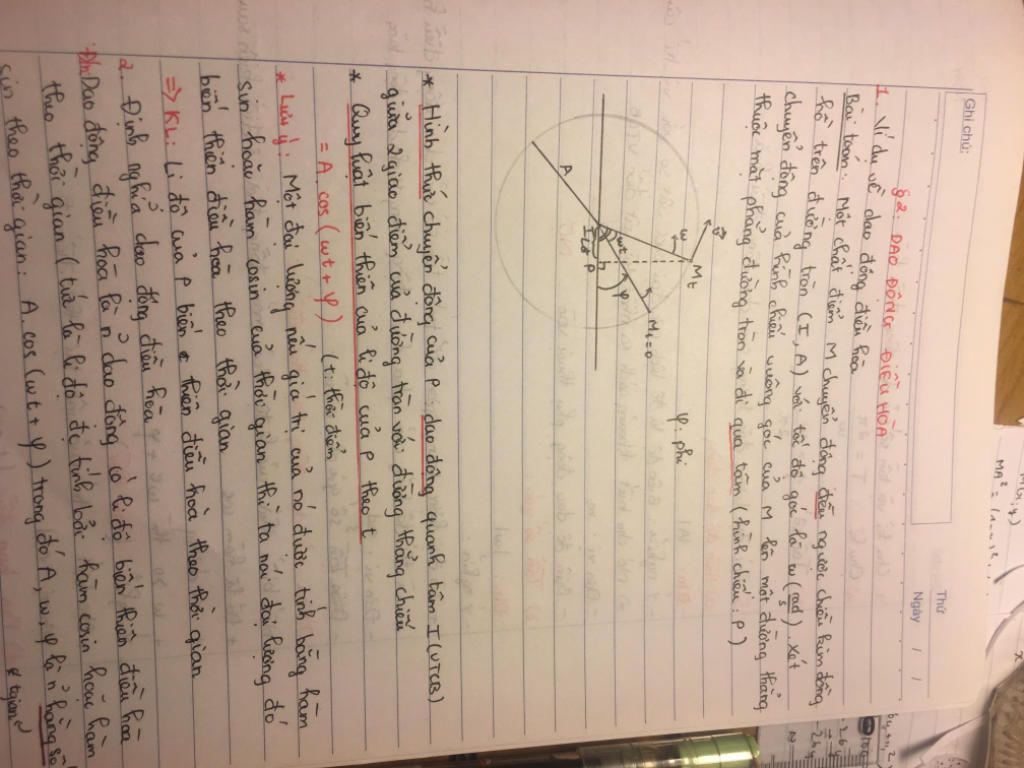 Ghi chú:
Thứ
Ngày / /
§2. DAO ĐỘNG ĐIỀU HÒA
1. Ví dụ về dao động điều hòa
Bài toán: Một chất điểm M chuyển động đều ngược chiều kim đồng
hồ trên đường tròn (I, A) với tốc độ góc là ω (rad/s) xét
chuyển động của hình chiếu vuông góc của M lên một đường thẳng
thuộc mặt phẳng đường tròn và đi qua tâm (hình chiếu: P)
Mt
ω
M t=0
φ: phi
A
ωt
φ
I
P
* Hình thức chuyển động của P: dao động quanh tâm I (VTCB)
giữa 2 giao điểm của đường tròn với đường thẳng chiếu
* Quy luật biến thiên của li độ của P theo t
= A.cos(ωt + φ) (t: thời điểm)
* Lưu ý: Một đại lượng nếu giá trị của nó được tính bằng hàm
sin hoặc hàm cosin của thời gian thì ta nói đại lượng đó
biến thiên điều hòa theo thời gian
=> KL: Li độ của P biến thiên điều hòa theo thời gian
2. Định nghĩa dao động điều hòa
Đn: Dao động điều hòa là n dao động có li độ biến thiên điều hòa
theo thời gian (tức là li độ đc tính bởi hàm cosin hoặc hàm
sin theo thời gian: A.cos(ωt + φ) trong đó A, ω, φ là n hằng số